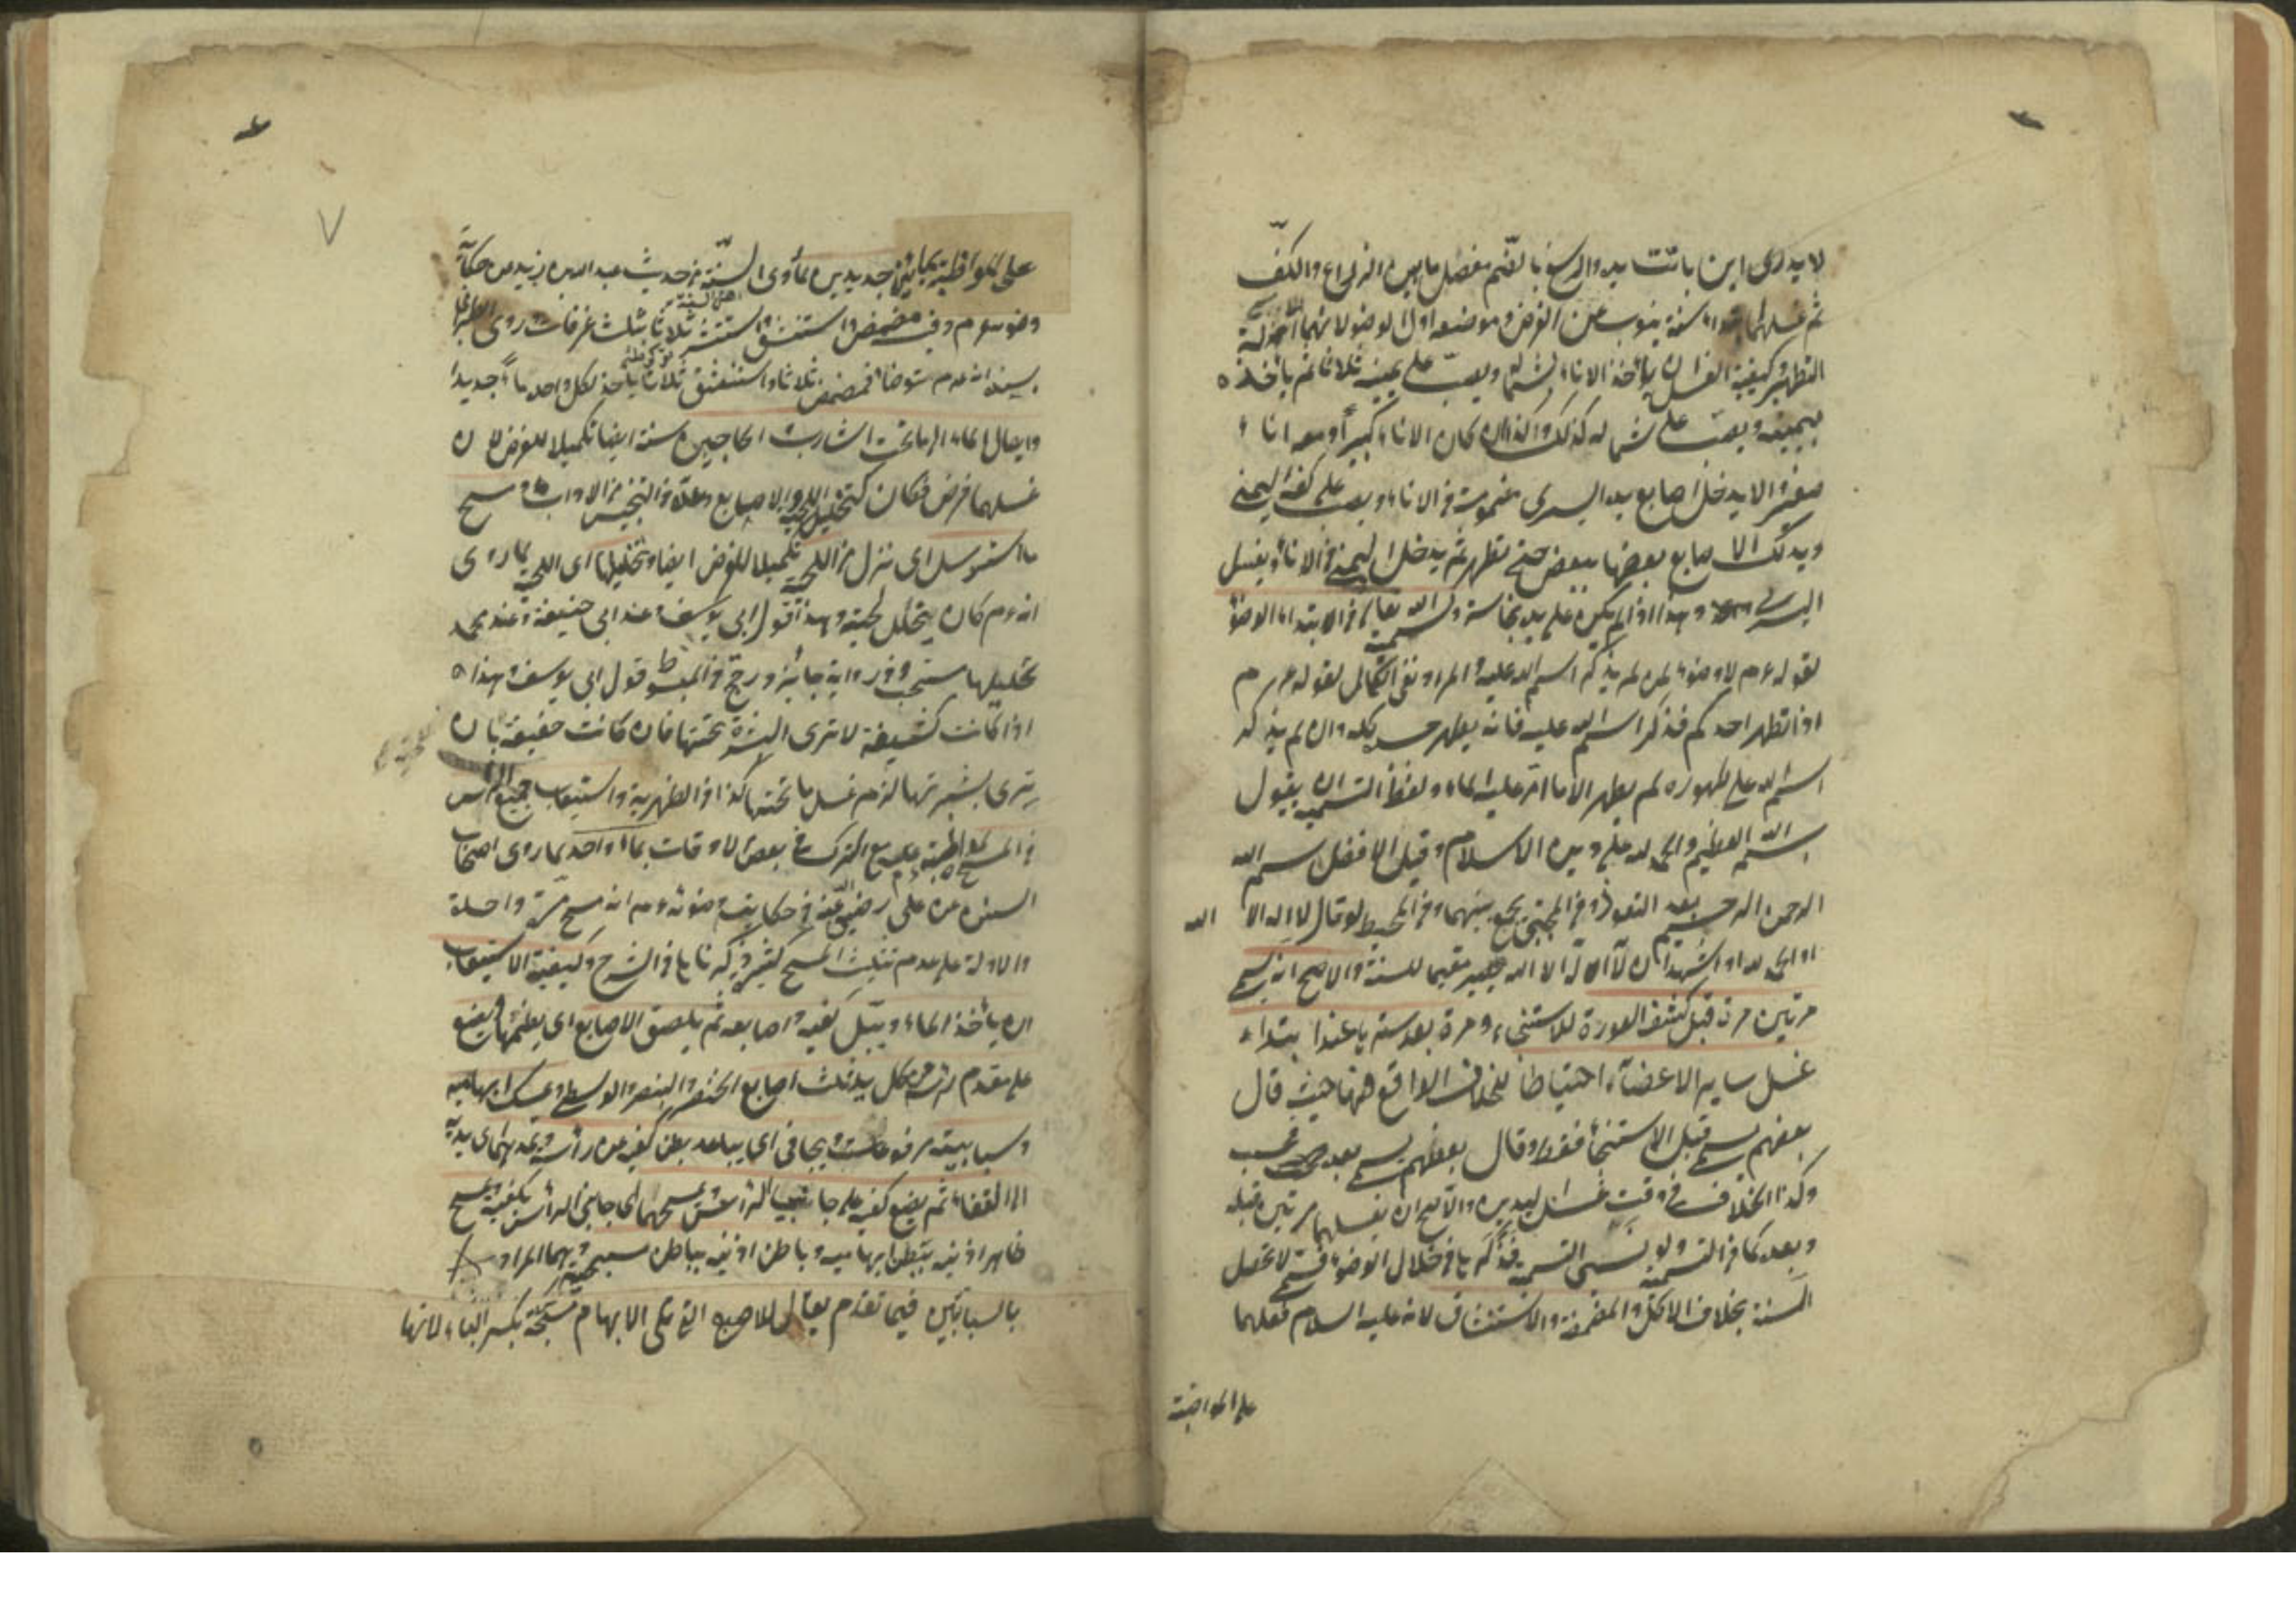 لا يدرى اين باتت يده والرسغ بالضم مفصل ما بين الذراع والكف
ثم غسلهما ابتداء سنة ينوب عن الفرض وموضعه اول الوضوء لانهما آلة
التطهير وكيفية الغسل ان يأخذ الاناء بشماله ويصب على يمينه ثلاثا ثم يأخذه
بيمينه ويصب على شماله كذلك وكذا ان كان الاناء كبيرا ومعه اناء
صغير والا يدخل اصابع يده اليسرى مضمومة في الاناء ويصب على كفه اليمنى
ويدلك الاصابع بعضها ببعض حتى تطهر ثم يدخل اليمنى في الاناء ويغسل
اليسرى وهذا اذا لم يكن على يده نجاسة وتسمية الله تعالى في ابتداء الوضوء
لقوله عم لا وضوء لمن لم يذكر اسم الله عليه والمراد نفى الكمال لقوله عم
اذا تطهر احدكم فذكر اسم الله عليه فانه يطهر جسده كله وان لم يذكر
اسم الله على طهوره لم يطهر الا ما مر عليه الماء ولفظ التسمية ان يقول
بسم الله العظيم والحمد لله على دين الاسلام وقيل الافضل بسم الله
الرحمن الرحيم بعد التعوذ وفي المجتبى يجمع بينهما وفي المحيط لو قال لا اله الا الله
او الحمد لله او اشهد ان لا اله الا الله يصير مقيما للسنة والاصح انه يسمى
مرتين مرة قبل كشف العورة للاستنجاء ومرة بعد ستره عند ابتداء
غسل ساير الاعضاء احتياطا للخلاف الواقع ههنا حيث قال
بعضهم يسمى قبل الاستنجاء فقط وقال بعضهم يسمى بعده فحسب
وكذا الخلاف في وقت غسل اليدين والاصح ان يغسلهما مرتين قبله
وبعده كما في التسمية ولو نسى التسمية فذكرها في خلال الوضوء فسمى لا تحصل
السنة بخلاف الاكل والمضمضة والاستنشاق لانه عليه السلام فعلهما
على المواظبة
٧
على المواظبة بمائين جديدين لما روى السنة من حديث عبد الله بن زيد من حكاية
وضوءه عم وفيه فمضمض واستنشق واستنثر ثلاثا بثلث غرفات وروى الطبرانى
بسنده انه عم توضأ فمضمض ثلاثا واستنشق ثلاثا يأخذ لكل واحد ماء جديدا
وايصال الماء الى ما تحت الشارب والحاجبين سنة ايضا تكميلا للفرض لان
غسلهما فرض فكان كتخليل اللحية والاصابع وعده في التجنيس من الاداب ومسح
ما استرسل اى نزل من اللحية تكميلا للفرض ايضا وتخليلها اى اللحية لما روى
انه عم كان يتخلل لحيته وهذا قول ابى يوسف وعند ابى حنيفة وعند محمد
تخليلها مستحب وفي رواية جائز ورجح في المبسوط قول ابى يوسف وهذا
اذا كانت كثيفة لا ترى البشرة تحتها فان كانت خفيفة بان
ترى بشرتها لزم غسل ما تحتها كذا في الظهيرية واستيعاب جميع الرأس
في المسح للمواظبة عليه مع الترك في بعض الاوقات بماء واحد لما روى اصحاب
السنن عن على رضى الله عنه في حكاية وضوئه عم انه مسح مرة واحدة
والادلة على عدم تثليث المسح كثيرة ذكرناها في الشرح وكيفية الاستيعاب
ان يأخذ الماء ويبل كفيه واصابعه ثم يلصق الاصابع اى يضمها ويضع
على مقدم رأسه من كل يد ثلث اصابع الخنصر والبنصر والوسطى ويمسك ابهاميه
وسبابتيه مرفوعات ويجافى اى يباعد بطن كفيه عن رأسه ويمدهما اى يديه
الى القفا ثم يضع كفيه على جانبى الرأس يمسحهما اى جانبى الرأس بكفيه ويمسح
ظاهر اذنيه ببطن ابهاميه وباطن اذنيه بباطن مسبحتيه وهما المراد
بالسبابتين فيما تقدم يقال للاصبع التى تلى الابهام مسبحة بكسر الباء لانها